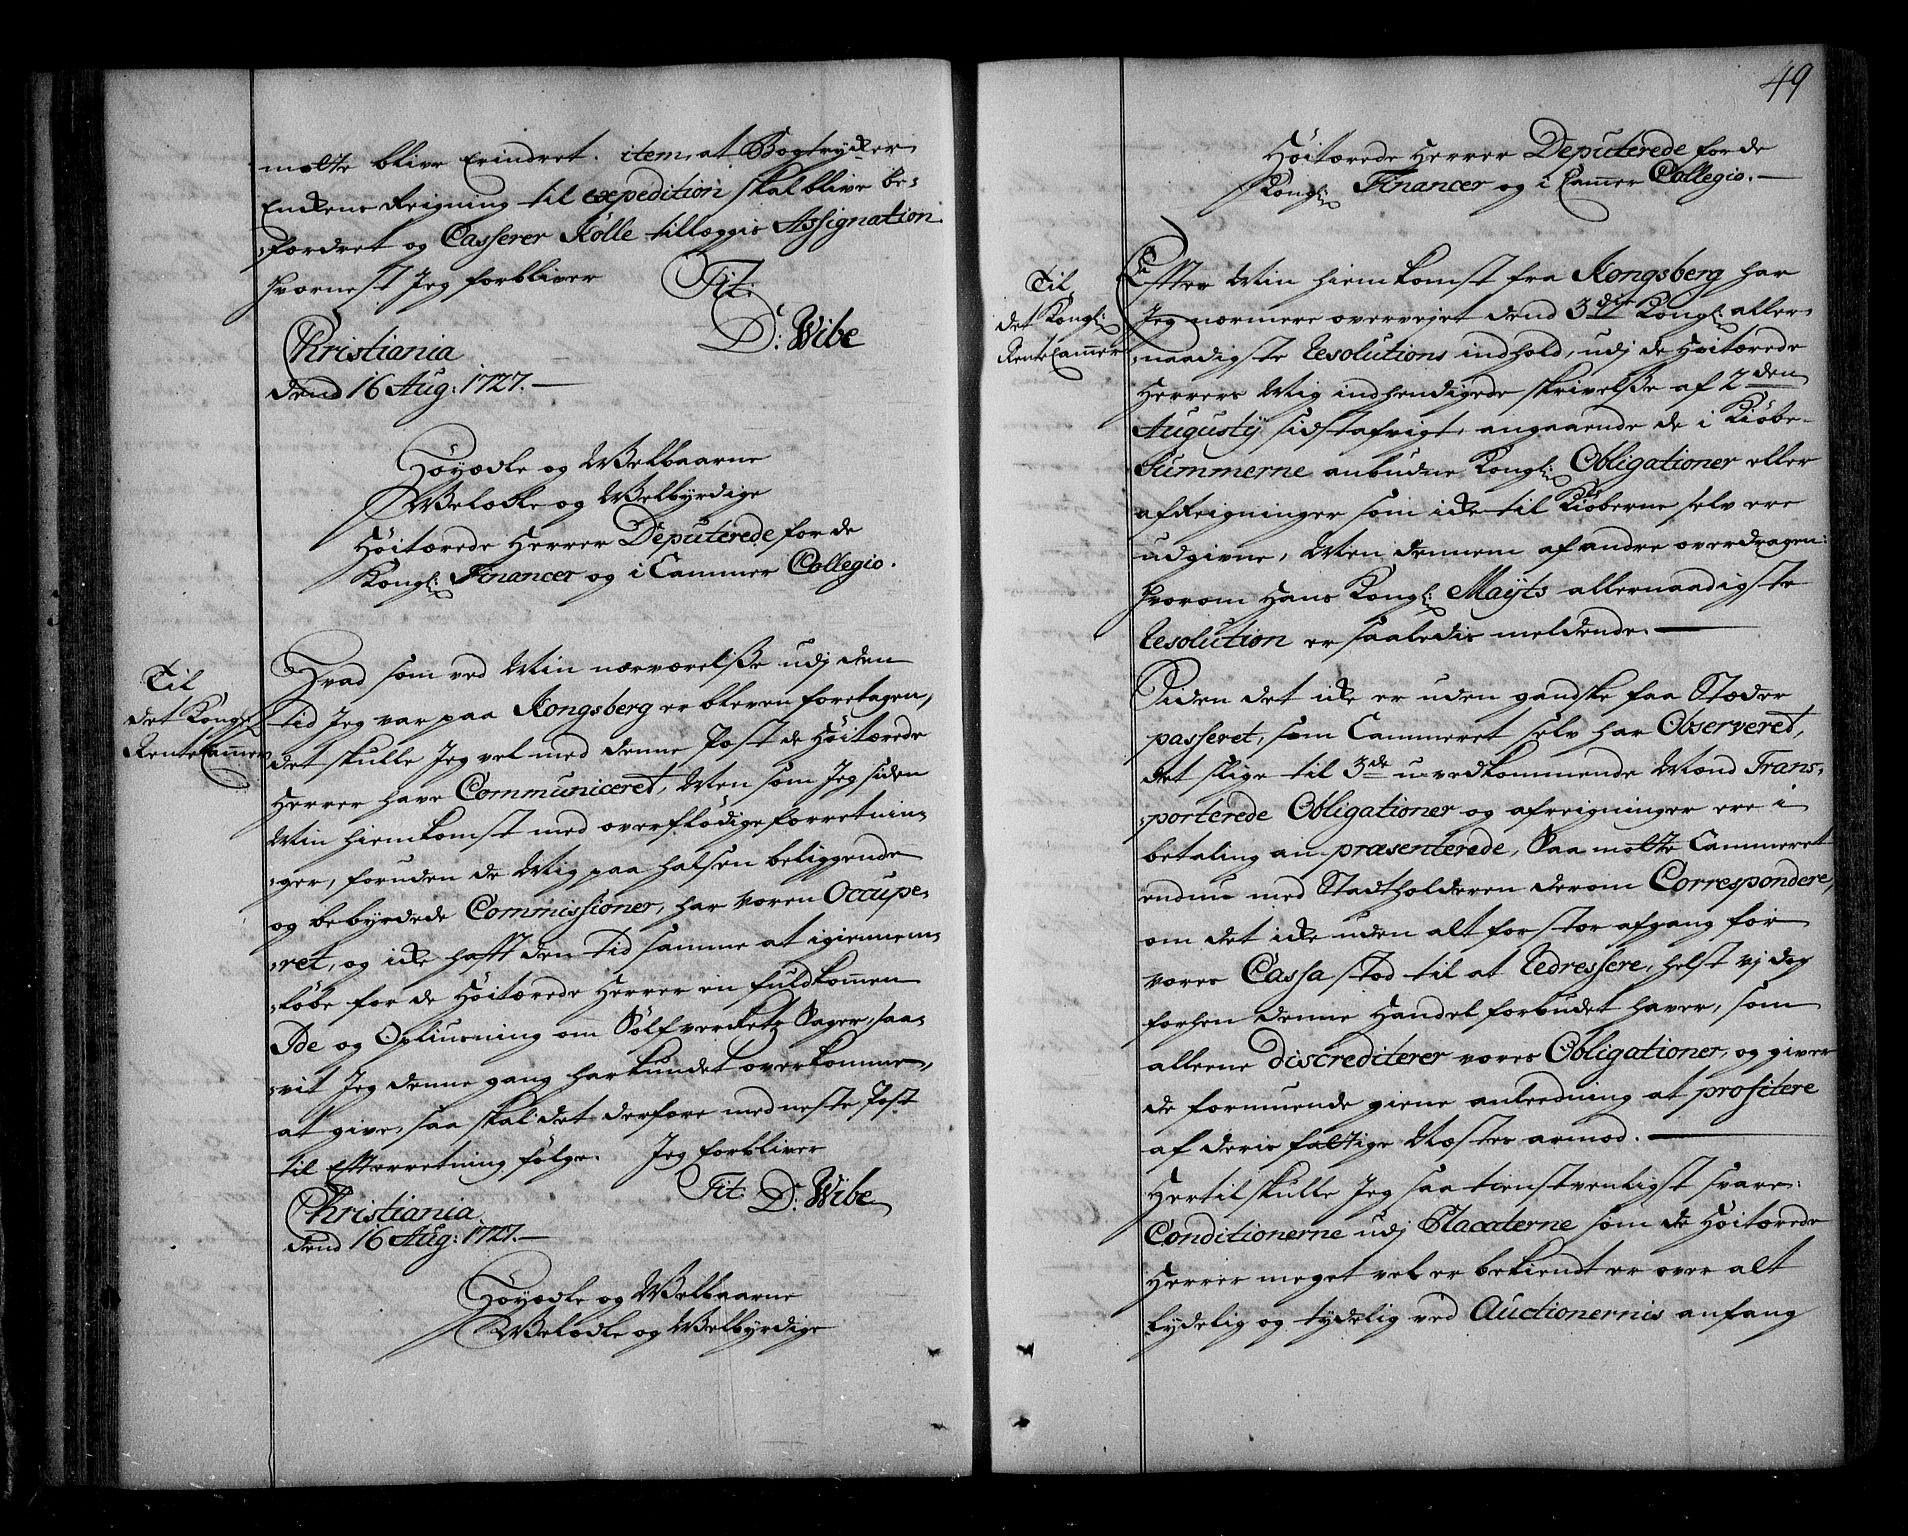 maatte blive Erindret. item, at Bogtrycker
Enckens Reigning til expedition skal blive be-
:fordret og Casserer Kølle tillæggis Assignation.
hvornest Jeg forbliver Tit:
D: Wibe
Christiania
dend 16 Aug: 1727.
Høyædle og Welbaarne
Welædle og Welbyrdige
Høitærede Herrer Deputerede for de
Kongl: Financer og i Cammer Collegio.
Til
det Kongl:
Rente Cammer
Hvad som ved Min nærværelße udj den
tid Jeg var paa Kongsberg er bleven foretagen,
det skulle Jeg vel med denne Post de Høitærede
Herrer have Communiceret, Men som Jeg siden
Min hiemkomst med overflødige forretnin-
:ger, foruden de Mig paa halsen beliggende
og bebyrdede Commissioner, har voren Occupe-
:ret, og icke hafft den tid samme at igiennem-
:løbe for de Høitærede Herrer en fuldkommen
Ide og Opliusning om Sølfverkets Sager, saa-
:vit Jeg denne gang har kundet overkomme,
at give, saa skal det derfore med neste Post
til Efterretning følge. Jeg forbliver
Tit: D: Wibe
Christiania
dend 16 Aug: 1727.
Høyædle og Welbaarne
Welædle og Welbyrdige
49
Høitærede Herrer Deputerede for de
Kongl: Financer og i Cammer Collegio.
Til
det Kongl:
Rente Cammer
Efter Min hiemkomst fra Kongsberg har
Jeg nærmere overvejet dend 3die Kongl: aller-
:naadigste Resolutions indhold, udj de Høitærede
Herrers Mig indhendigede skrivelße af 2den
Augustij sidstafvigt, angaaende de i Kiøbe-
Summerne anbudne Kongl: Obligationer eller
afReigninger som icke til Kiøberne selv ere
udgivne, Men dennem af andre overdragen:
hvorom Hans Kongl: Mayts allernaadigste
Resolution er saaledis meldende.
Siden det icke er uden gandske faa Stæder
passeret, som Cammeret selv har Observeret,
det slige til 3de uvedkommende Mænd Trans-
:porterede Obligationer og afreigninger ere i
betaling an præsenterede, Saa maatte Cammeret
endnu med Stadtholderen derom Correspondere,
om det icke uden alt for stor afgang for
vores Cassa stod til at Redressere, helst vj dog
forhen denne Handel forbudet haver, som
alleene discrediterer vores Obligationer, og giver
de formuende giene anleedning at profitere
af deris fattige Næstes armod.
Hertil skulle Jeg saa tienstvenligst svare:
Conditionerne udj Placaterne som de Høitærede
Herrer meget vel er bekiendt er over alt
lydelig og tydelig ved Auctionernis anfang